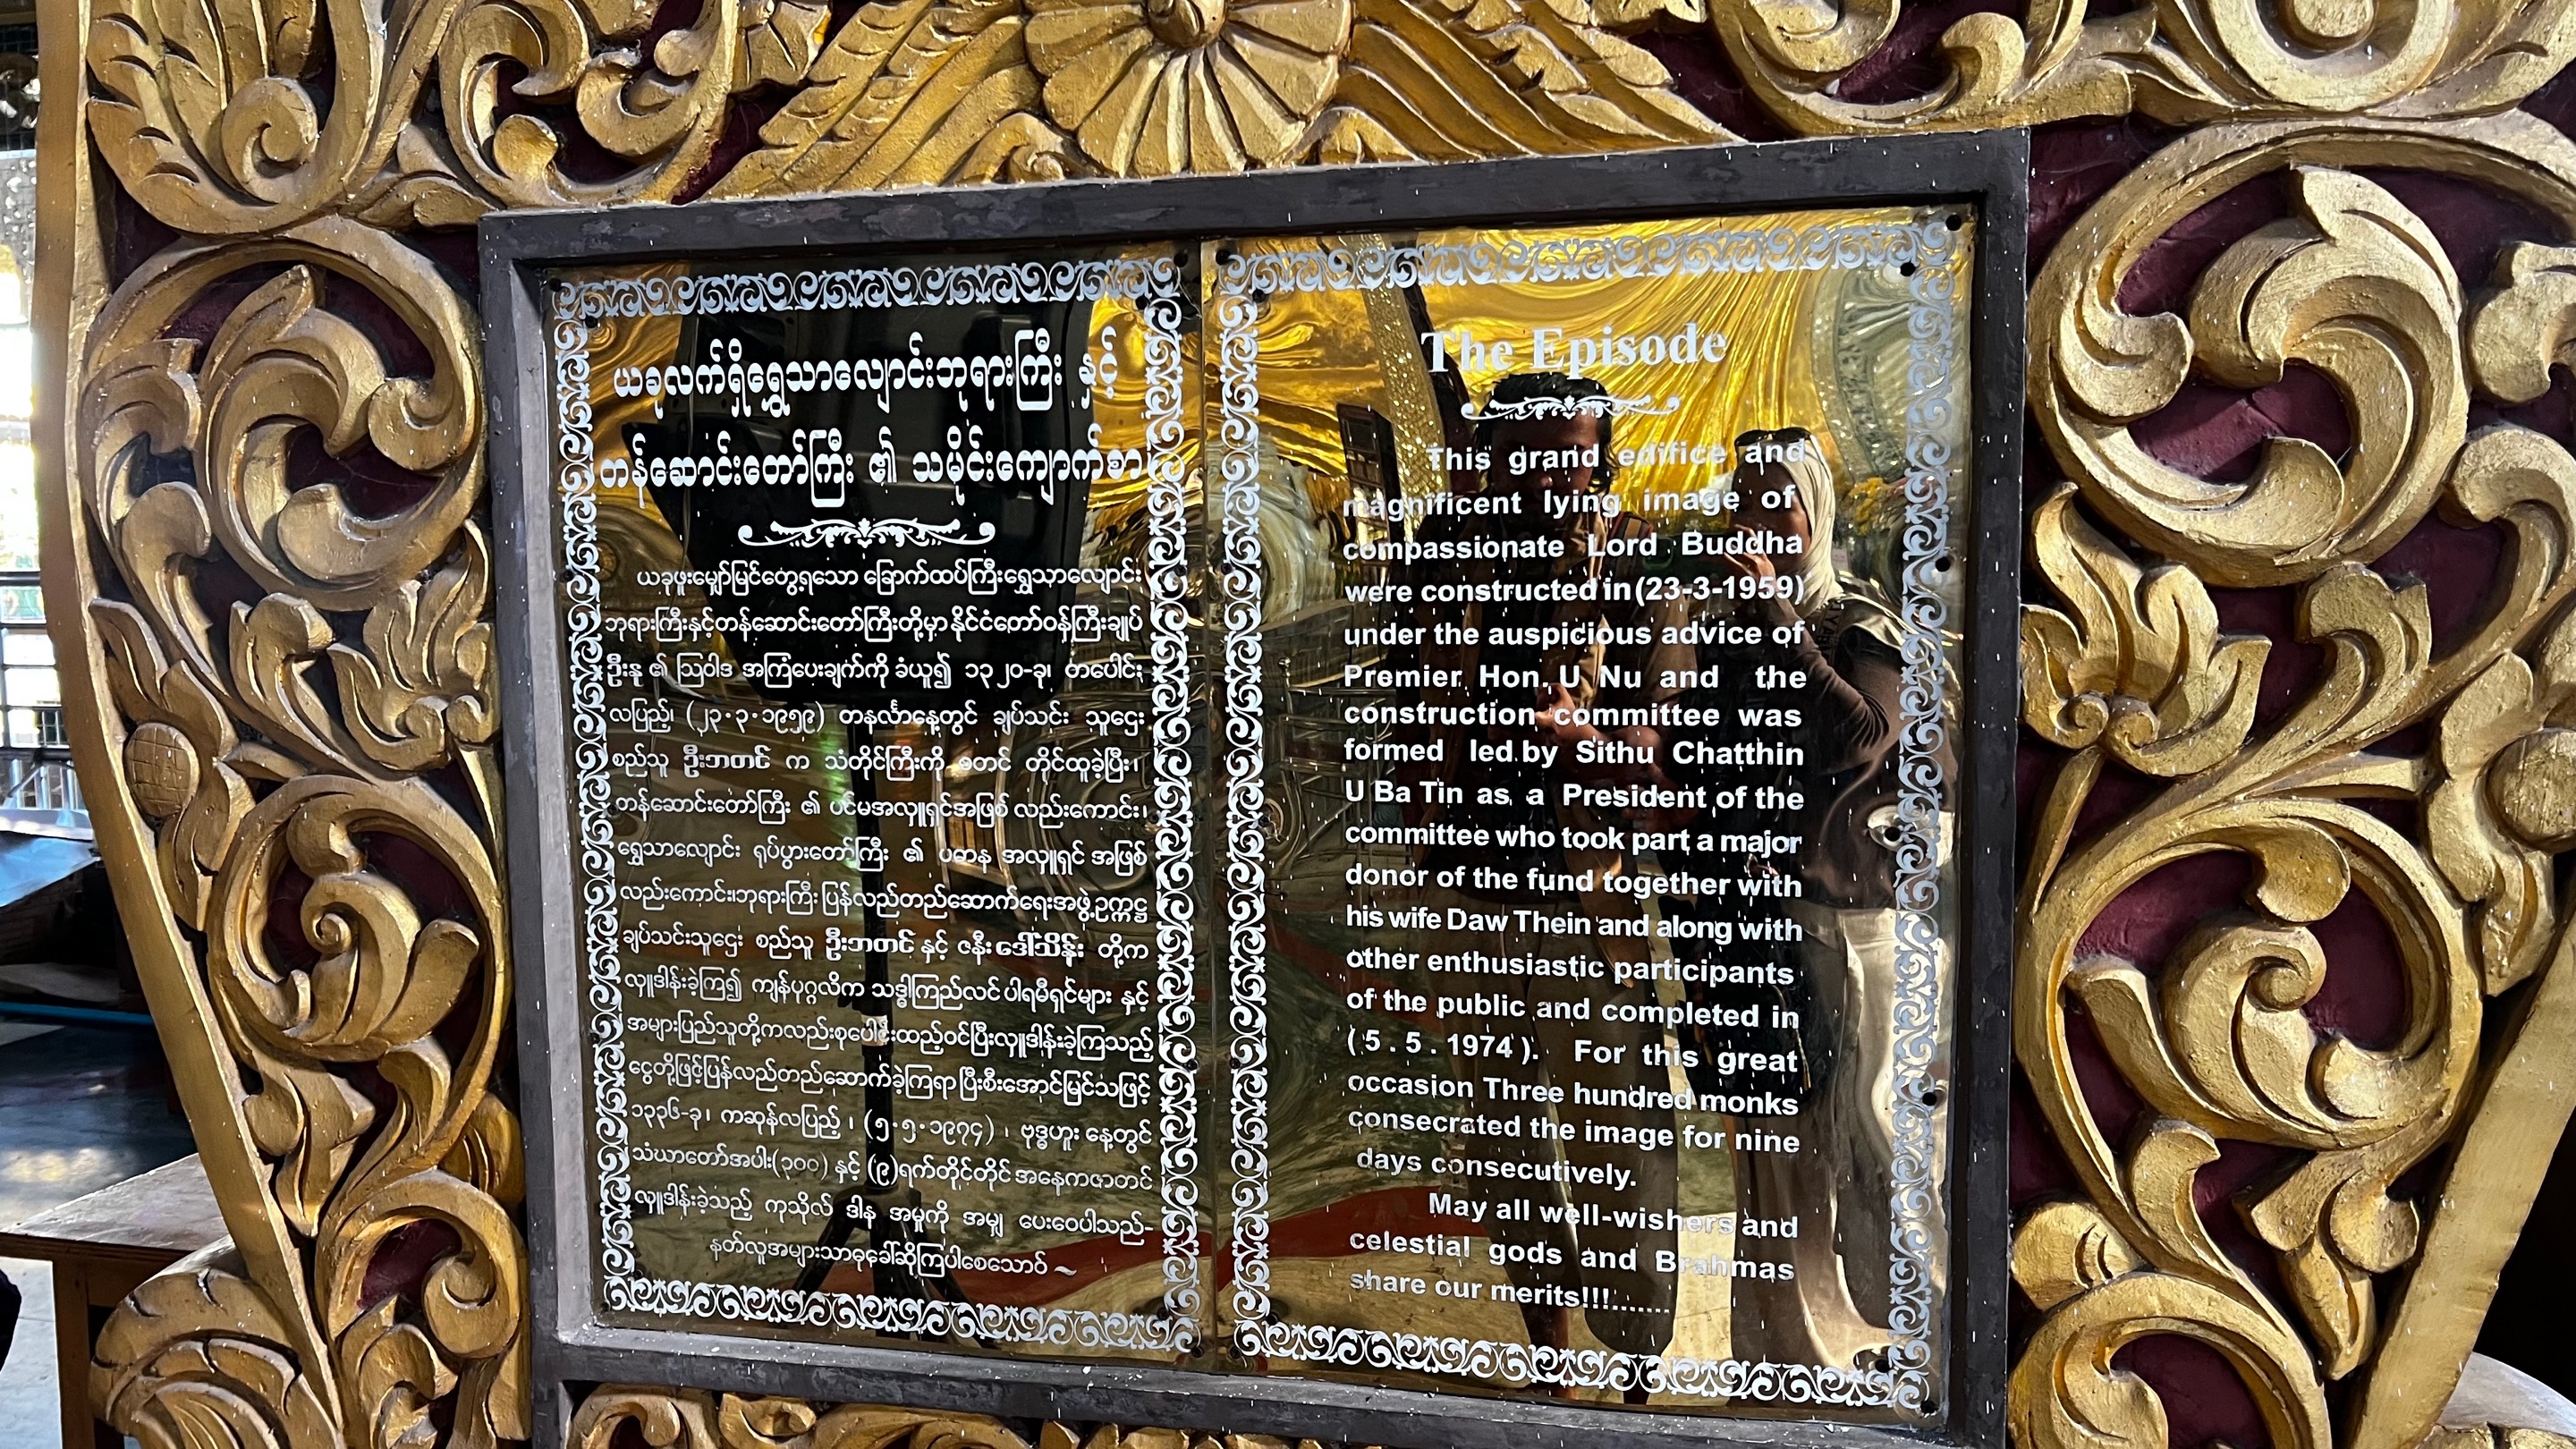 ယခုလက်ရှိရွှေသာလျောင်းဘုရားကြီး နှင့်
တန်ဆောင်းတော်ကြီး ၏ သမိုင်းကျောက်စာ
ယခုဖူးမျှော်မြင်တွေ့ရသော ခြောက်ထပ်ကြီးရွှေသာလျောင်း
ဘုရားကြီးနှင့်တန်ဆောင်းတော်ကြီးတို့မှာ နိုင်ငံတော်ဝန်ကြီးချုပ်
ဦးနု ၏ ဩဝါဒ အကြံပေးချက်ကို ခံယူ၍ ၁၃၂၀-ခု၊ တပေါင်း
လပြည့်၊ (၂၃.၃.၁၉၅၉) တနင်္လာနေ့တွင် ချပ်သင်း သူဌေး
စည်သူ ဦးဘတင် က သံတိုင်ကြီးကို စတင် တိုင်ထူခဲ့ပြီး၊
တန်ဆောင်းတော်ကြီး ၏ ပင်မအလှူရှင်အဖြစ် လည်းကောင်း၊
ရွှေသာလျောင်း ရုပ်ပွားတော်ကြီး ၏ ပဓာန အလှူရှင် အဖြစ်
လည်းကောင်း၊ဘုရားကြီးပြန်လည်တည်ဆောက်ရေးအဖွဲ့ဥက္ကဋ္ဌ
ချပ်သင်းသူဌေး စည်သူ ဦးဘတင် နှင့် ဇနီး ဒေါ်သိန်း တို့က
လှူဒါန်းခဲ့ကြ၍ ကျန်ပုဂ္ဂလိက သဒ္ဓါကြည်လင် ပါရမီရှင်များ နှင့်
အများပြည်သူတို့ကလည်းစုပေါင်းထည့်ဝင်ပြီးလှူဒါန်းခဲ့ကြသည့်
ငွေတို့ဖြင့်ပြန်လည်တည်ဆောက်ခဲ့ကြရာ ပြီးစီးအောင်မြင်သဖြင့်
၁၃၃၆-ခု၊ ကဆုန်လပြည့်၊ (၅.၅.၁၉၇၄) ၊ ဗုဒ္ဓဟူး နေ့တွင်
သံဃာတော်အပါး(၃၀၀) နှင့် (၉)ရက်တိုင်တိုင် အနေကဇာတင်
လှူဒါန်းခဲ့သည့် ကုသိုလ် ဒါန အမှုကို အမျှ ပေးဝေပါသည်-
နတ်လူအများသာဓုခေါ်ဆိုကြပါစေသောဝ် ~
The Episode
This grand edifice and
magnificent lying image of
compassionate Lord Buddha
were constructed in (23-3-1959)
under the auspicious advice of
Premier Hon. U Nu and the
construction committee was
formed led by Sithu Chatthin
U Ba Tin as a President of the
committee who took part a major
donor of the fund together with
his wife Daw Thein and along with
other enthusiastic participants
of the public and completed in
( 5 . 5 . 1974 ). For this great
occasion Three hundred monks
consecrated the image for nine
days consecutively.
May all well-wishers and
celestial gods and Brahmas
share our merits!!!.......